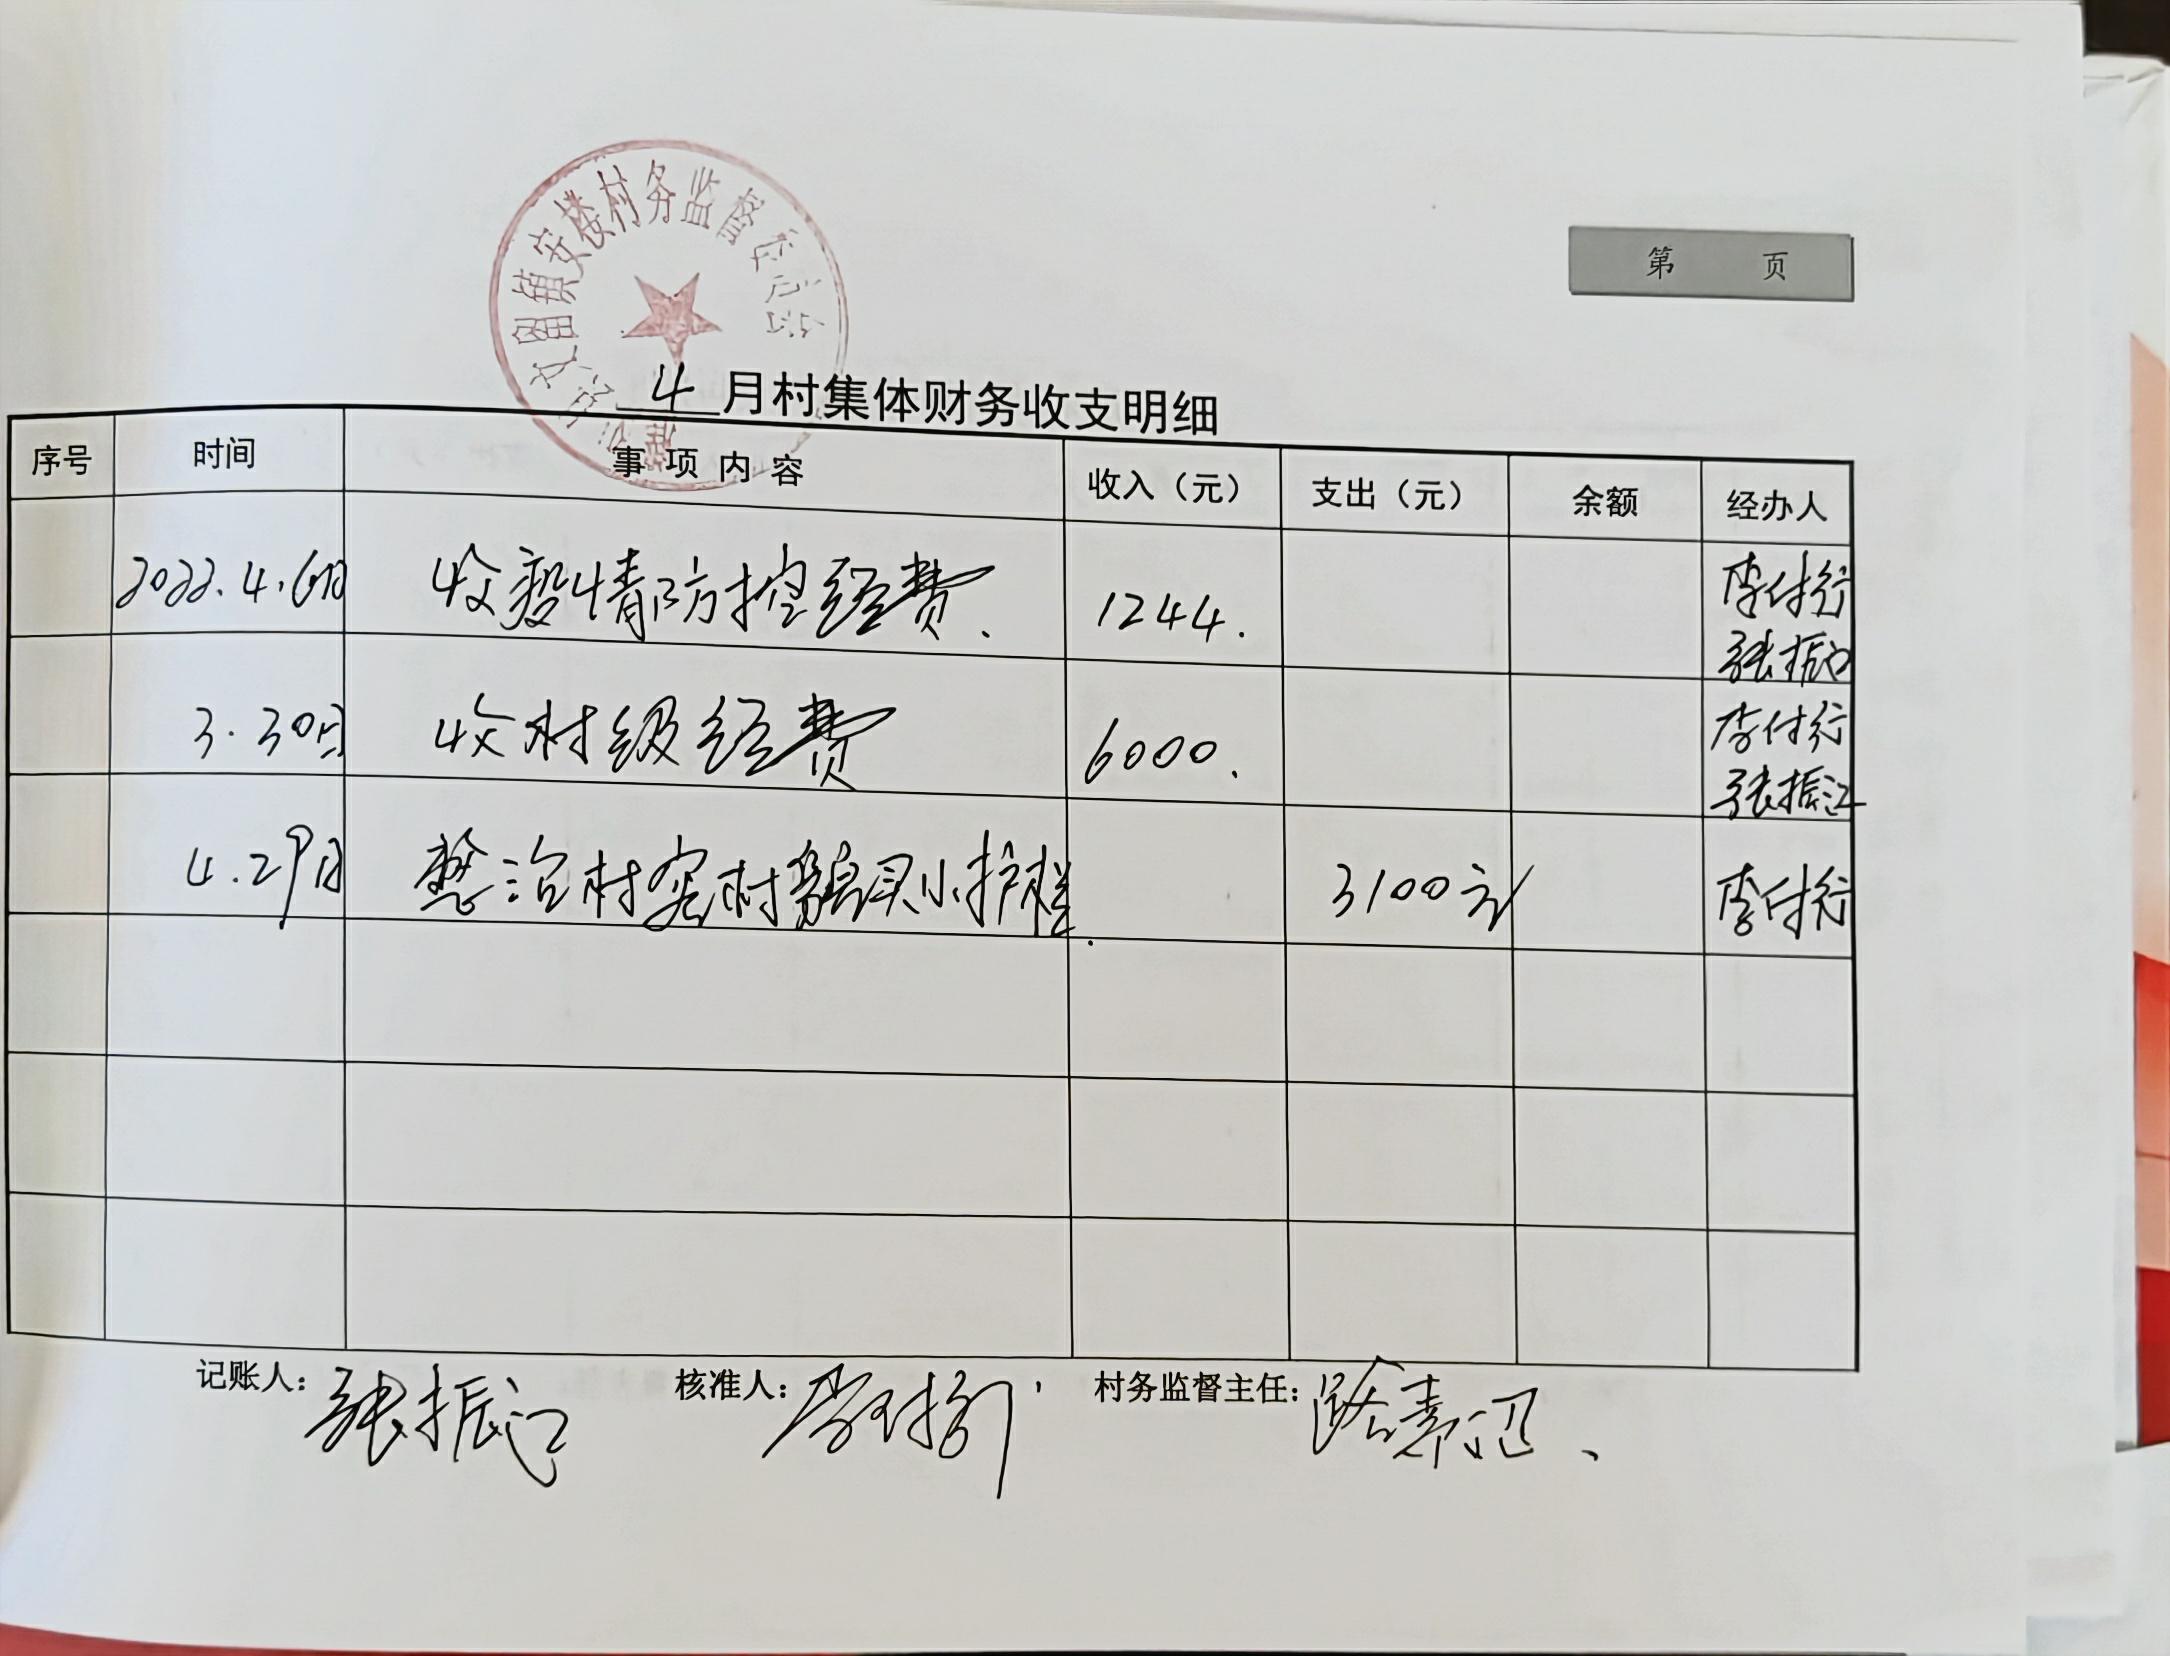 文留镇安楼村务监督委员会
第 页
4月村集体财务收支明细
序号 时间 事项内容 收入（元） 支出（元） 余额 经办人
2022.4.6日 收疫情防控经费. 1244. 李付行 张振江
3.30日 收村级经费 6000. 李付行 张振江
4.29日 整治村容村貌买小护栏. 3100元 李付行
记账人：张振江 核准人：李付行 村务监督主任：路